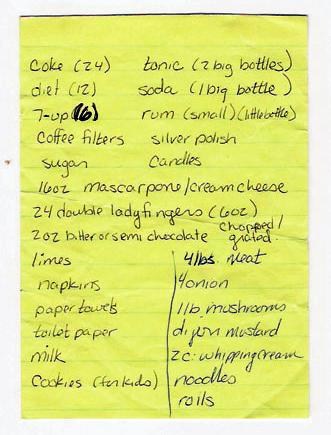 coke (24) tonic (2 big bottles)
diet (12) soda (1 big bottle)
7-up (6) rum (small) (little bottle)
coffee filters silver polish
sugar candles
16oz mascarpone/cream cheese
24 double ladyfingers (6oz)
2oz bitter or semi chocolate chopped/
grated
limes 4lbs meat
napkins 4 onion
paper towels 1 lb mushrooms
toilet paper dijon mustard
milk 2c. whipping cream
cookies (for kids) noodles
rolls